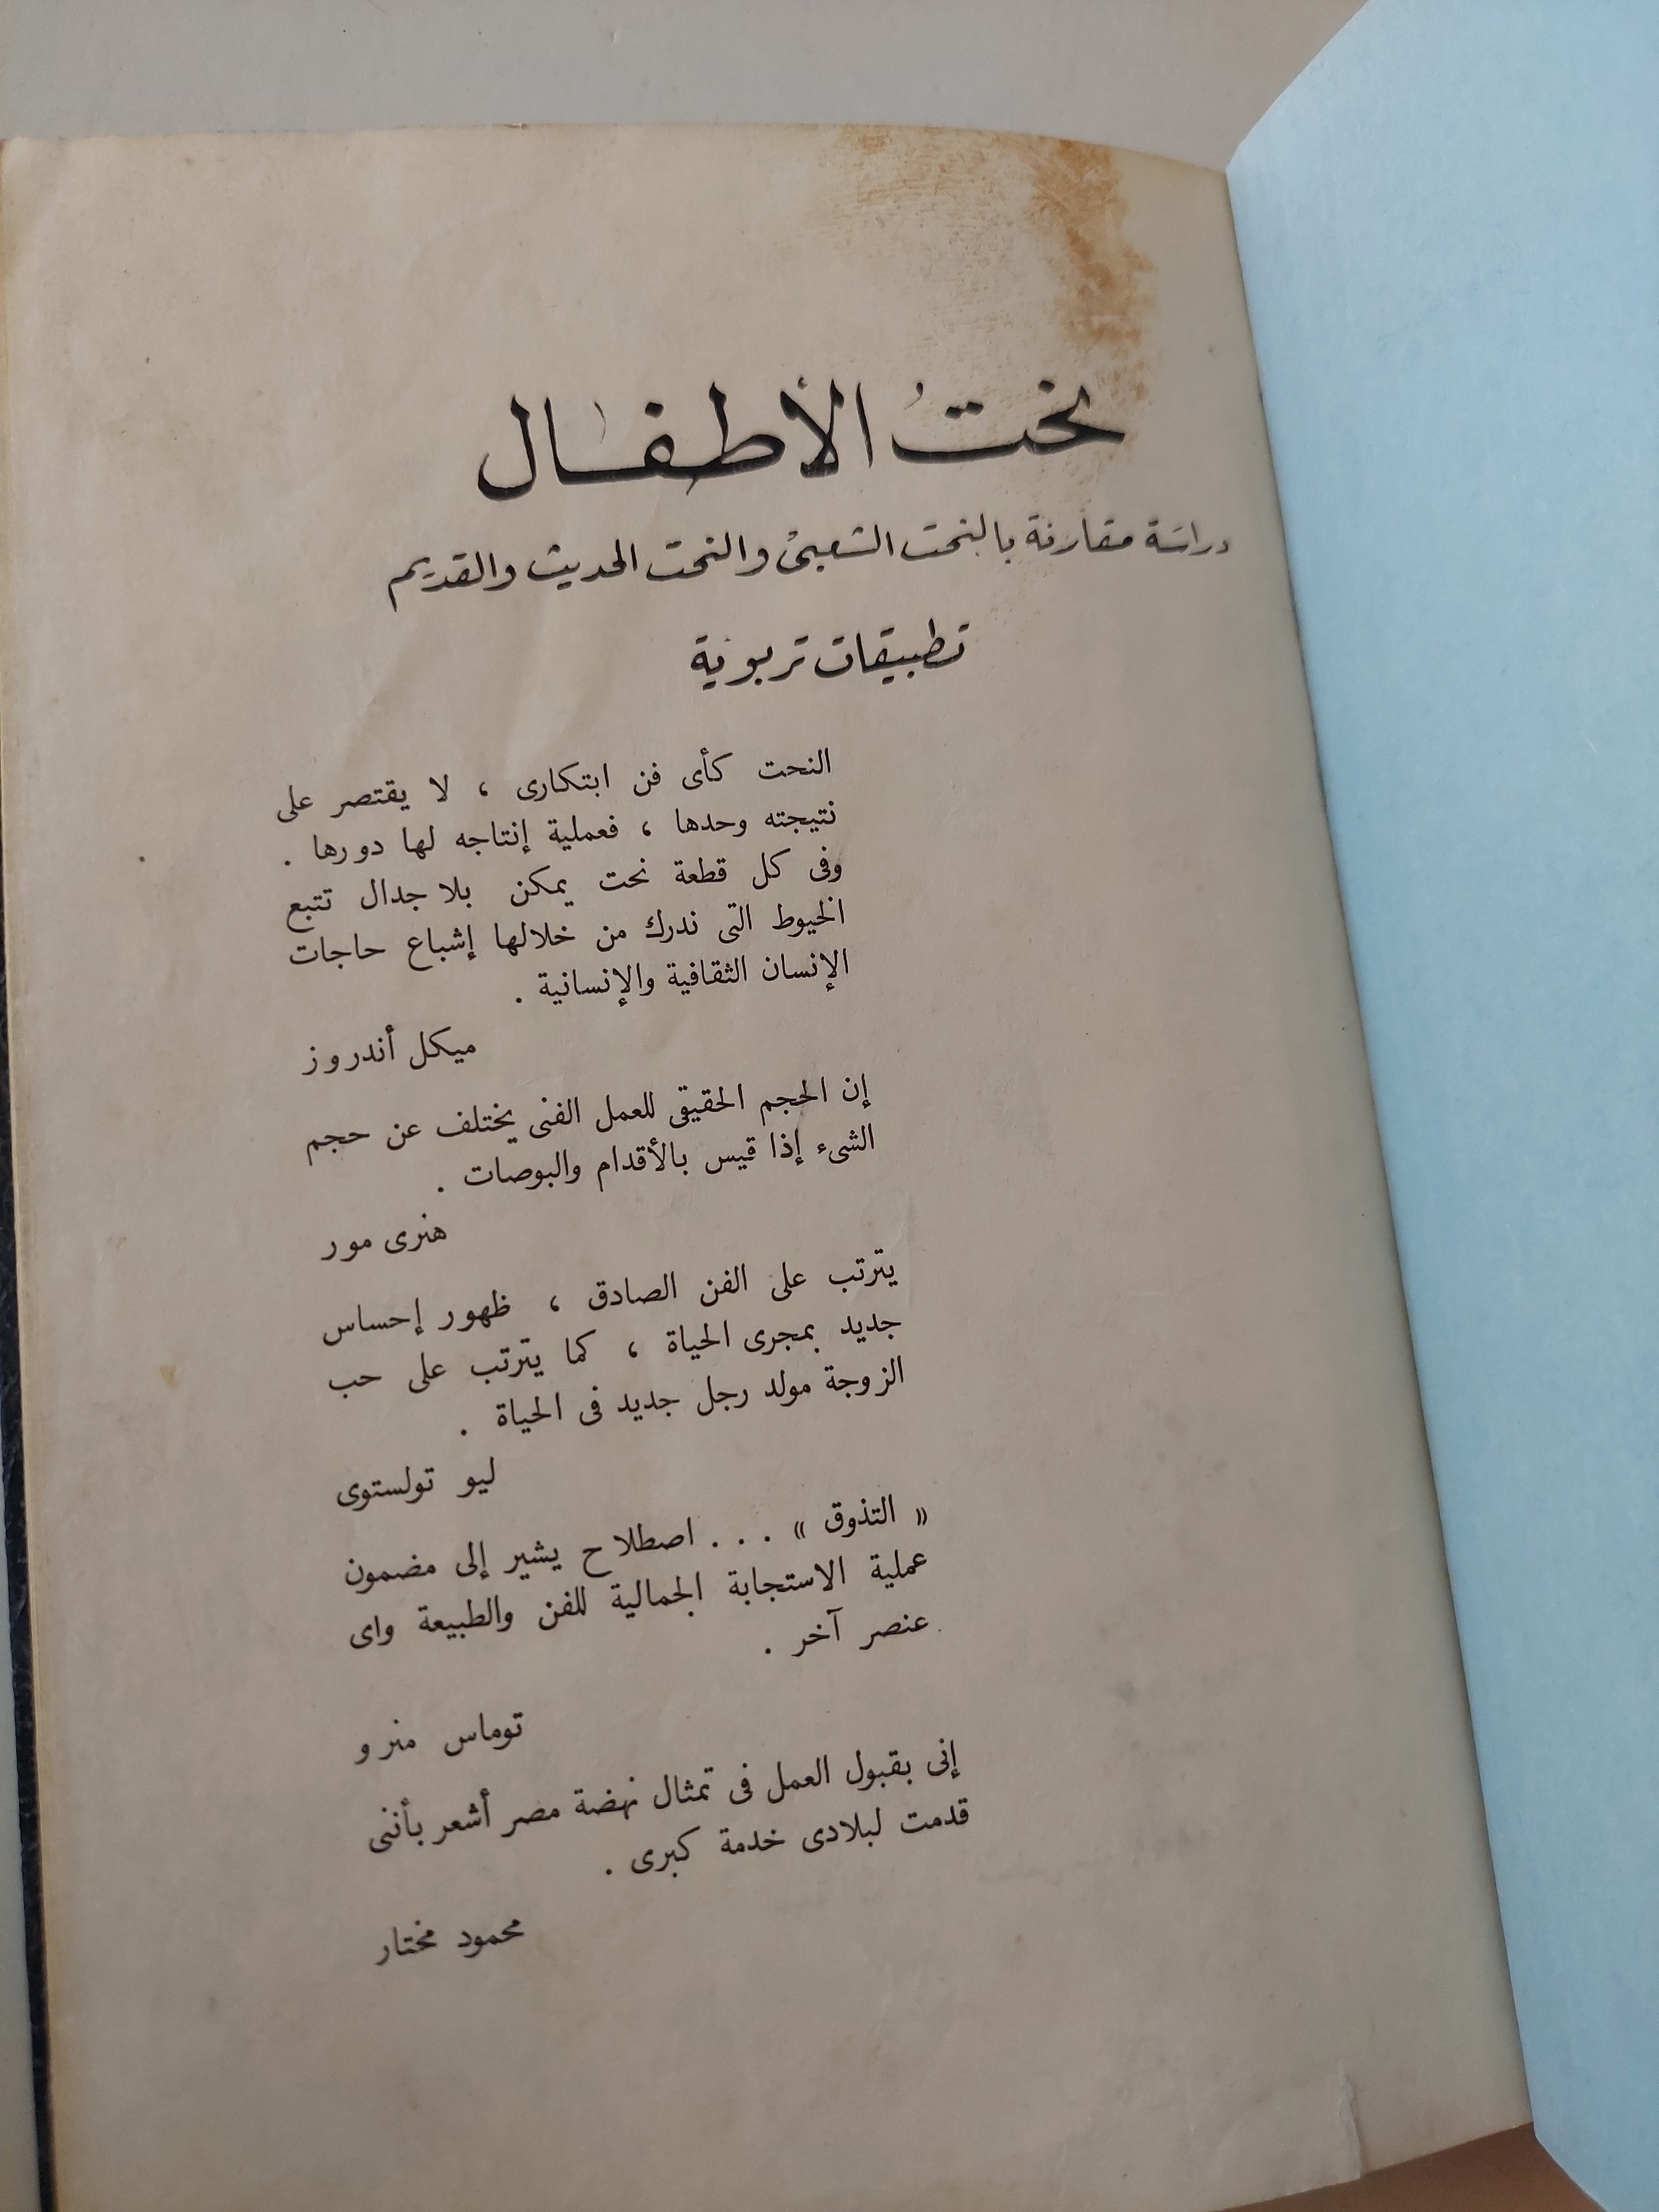 نحتُ الأطفال
دراسَة مقارنة بالنحت الشعبىْ والنحت الحديث والقديم
تطبيقات تربوية
النحت كأى فن ابتكارى ، لا يقتصر على
نتيجته وحدها ، فعملية إنتاجه لها دورها .
وفى كل قطعة نحت يمكن بلا جدال تتبع
الخيوط التى ندرك من خلالها إشباع حاجات
الإنسان الثقافية والإنسانية .
ميكل أندروز
إن الحجم الحقيقى للعمل الفنى يختلف عن حجم
الشىء إذا قيس بالأقدام والبوصات .
هنرى مور
يترتب على الفن الصادق ، ظهور إحساس
جديد بمجرى الحياة ، كما يترتب على حب
الزوجة مولد رجل جديد فى الحياة .
ليو تولستوى
« التذوق » . . . اصطلاح يشير إلى مضمون
عملية الاستجابة الجمالية للفن والطبيعة واى
عنصر آخر .
توماس منرو
إنى بقبول العمل فى تمثال نهضة مصر أشعر بأننى
قدمت لبلادى خدمة كبرى .
محمود مختار